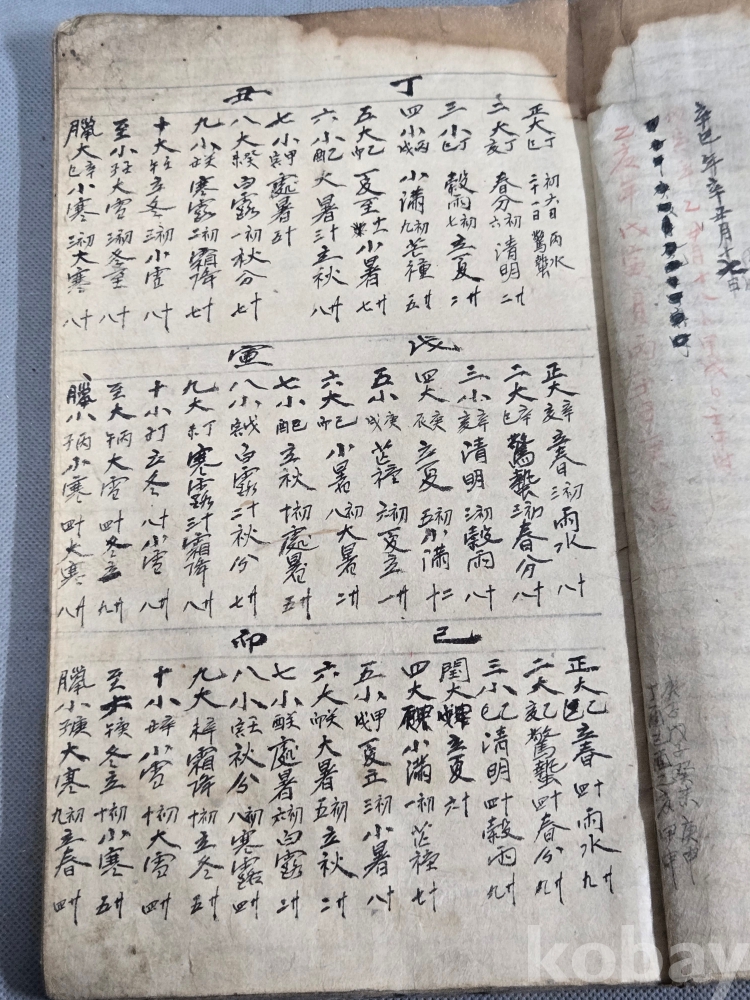 辛巳年辛丑月十七日
丁丑
正大丁巳 初六日雨水 二十一日驚蟄
二大丁亥 春分初六 清明廿二
三小丁巳 穀雨初七 立夏廿二
四小丙戌 小滿初九 芒種廿五
五大乙卯 夏至十一 小暑廿七
六小乙酉 大暑十三 立秋廿八
七小甲寅 處暑十五
八大癸未 白露初一 秋分十七
九小癸丑 寒露初二 霜降十七
十大壬午 立冬初三 小雪十八
至小壬子 大雪初三 冬至十八
臘大辛巳 小寒初三 大寒十八
戊寅
正大辛亥 立春初三 雨水十八
二大辛巳 驚蟄初三 春分十八
三小辛亥 清明初三 穀雨十八
四大庚辰 立夏初五 小滿二十
五小庚戌 芒種初六 夏立廿一
六大己卯 小暑初八 大暑廿二
七小己酉 立秋初十 處暑廿五
八小戊寅 白露十二 秋分廿七
九大丁未 寒露十三 霜降廿八
十小丁丑 立冬十八 小雪廿八
至大丙午 大雪十四 冬立廿九
臘小丙子 小寒十四 大寒廿八
己卯
正大乙巳 立春十四 雨水廿九
二大乙亥 驚蟄十四 春分廿九
三小乙巳 清明十四 穀雨廿九
閏大 立夏十六
四大 小滿初一 芒種十七
五小甲戌 夏立初三 小暑十八
六大癸卯 大暑初五 立秋廿二
七小癸酉 處暑初六 白露廿二
八小壬寅 秋分初八 寒露廿四
九大辛未 霜降初十 立冬廿五
十小辛丑 小雪初十 大雪廿四
至大庚午 冬立初十 小寒廿五
臘小庚子 大寒初九 立春廿四
kobay